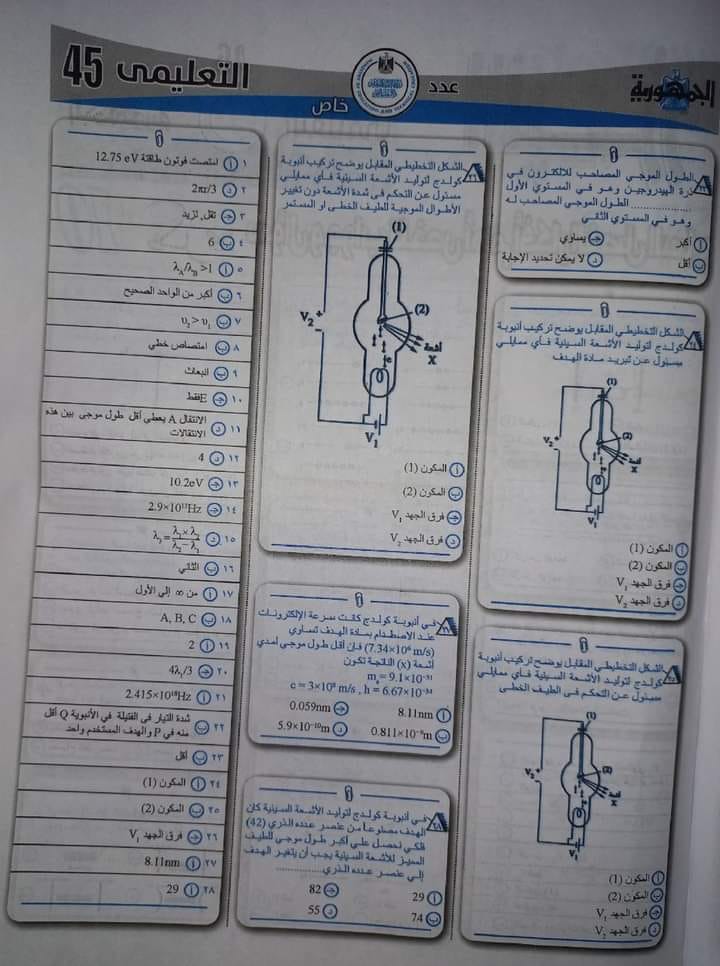 الجمهورية
عدد
خاص
التعليمى 45
الطول الموجي المصاحب للالكترون في
ذرة الهيدروجين وهو في المستوي الأول
.............. الطول الموجي المصاحب له
وهو في المستوي الثاني
أ أكبر
ج يساوي
ب أقل
د لا يمكن تحديد الإجابة
الشكل التخطيطي المقابل يوضح تركيب أنبوبة
كولدج لتوليد الأشعة السينية فأي ممايلي
مسئول عن تبريد مادة الهدف
(1)
(2)
V₂
أشعة
X
V₁
أ المكون (1)
ب المكون (2)
ج فرق الجهد V₁
د فرق الجهد V₂
الشكل التخطيطي المقابل يوضح تركيب أنبوبة
كولدج لتوليد الأشعة السينية فأي ممايلي
مسئول عن التحكم فى الطيف الخطى
(1)
(2)
V₂
أشعة
X
V₁
أ المكون (1)
ب المكون (2)
ج فرق الجهد V₁
د فرق الجهد V₂
الشكل التخطيطي المقابل يوضح تركيب أنبوبة
كولدج لتوليد الأشعة السينية فأي ممايلي
مسئول عن التحكم في شدة الأشعة دون تغيير
الأطوال الموجية للطيف الخطى او المستمر
(1)
(2)
V₂
أشعة
X
e
V₁
أ المكون (1)
ب المكون (2)
ج فرق الجهد V₁
د فرق الجهد V₂
في أنبوبة كولدج كانت سرعة الإلكترونات
عند الاصطدام بمادة الهدف تساوي
(7.34×10⁶ m/s) فإن أقل طول موجي لمدي
أشعة (x) الناتجة تكون
mₑ= 9.1×10⁻³¹
c = 3×10⁸ m/s , h = 6.67×10⁻³⁴
أ 8.11nm
ج 0.059nm
ب 0.811×10⁻⁹m
د 5.9×10⁻¹⁰m
في أنبوبة كولدج لتوليد الأشعة السينية كان
الهدف مصنوعاً من عنصر عدده الذري (42)
فلكي نحصل علي أكبر طول موجي للطيف
المميز للأشعة السينية يجب أن يتغير الهدف
إلي عنصر عدده الذري..............
أ 29
ج 82
ب 74
د 55
١ أ امتصت فوتون طاقتة 12.75 eV
٢ د 2πr/3
٣ ج تقل, تزيد
٤ ب 6
٥ أ λA/λB >1
٦ ب أكبر من الواحد الصحيح
٧ ب
٨ ب امتصاص خطي
٩ ب انبعاث
١٠ ج E فقط
١١ د الانتقال A يعطى أقل طول موجى بين هذه
الانتقالات
١٢ د 4
١٣ ج 10.2eV
١٤ ج
١٥ د
١٦ ب الثاني
١٧ أ من ∞ إلى الأول
١٨ ب A, B, C
١٩ أ 2
٢٠ ج 4λ₁/3
٢١ أ 2.415×10¹⁸Hz
٢٢ ب شدة التيار فى الفتيلة في الأنبوبة Q أقل
منه في P والهدف المستخدم واحد
٢٣ ب أقل
٢٤ أ المكون (1)
٢٥ ب المكون (2)
٢٦ ج فرق الجهد V₁
٢٧ أ 8.11nm
٢٨ أ 29